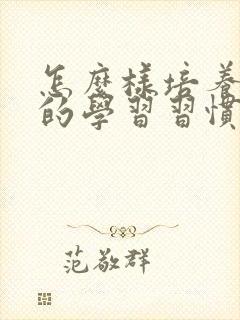 怎麼樣培養
的學習習慣
范敬群